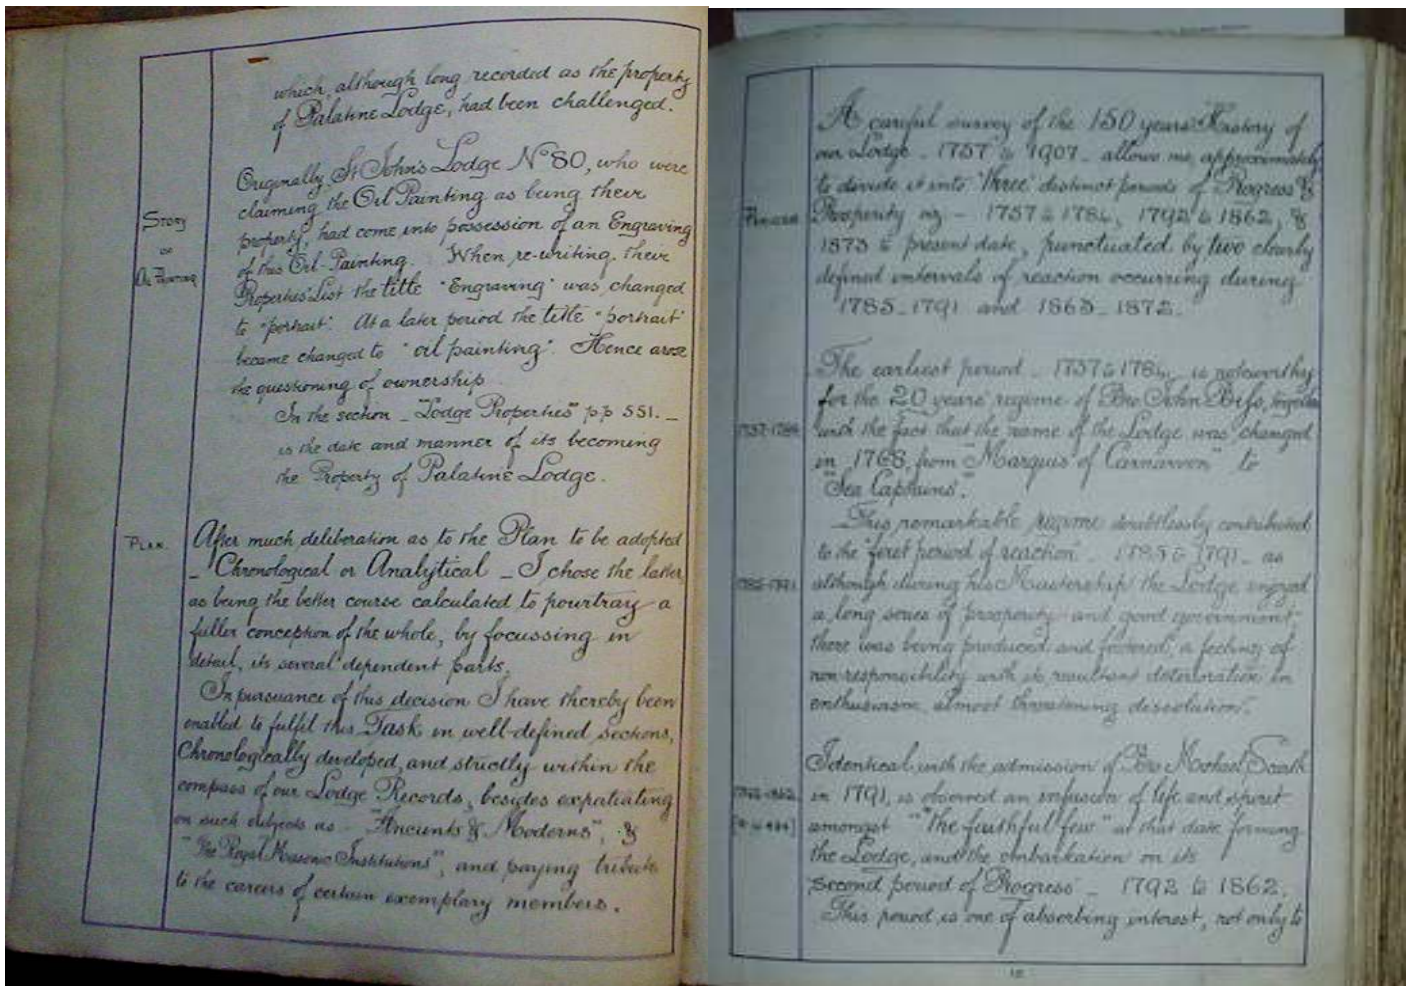 which, although long recorded as the property
of Palatine Lodge, had been challenged.
Story
of
Oil Painting
Originally, St John's Lodge No 80, who were
claiming the Oil Painting as being their
property, had come into possession of an Engraving
of this Oil-Painting. When re-writing their
Properties List the title "Engraving" was changed
to "portrait". At a later period the title "portrait"
became changed to "oil painting". Hence arose
the questioning of ownership.
In the section - "Lodge Properties" p.p 551. -
is the date and manner of its becoming
the Property of Palatine Lodge.
Plan.
After much deliberation as to the Plan to be adopted
- Chronological or Analytical - I chose the latter,
as being the better course calculated to pourtray a
fuller conception of the whole, by focussing in
detail, its several dependent parts.
In pursuance of this decision I have thereby been
enabled to fulfil this Task in well-defined sections,
Chronologically developed, and strictly within the
compass of our Lodge Records, besides expatiating
on such subjects as - "Ancients & Moderns", &
"The Royal Masonic Institutions", and paying tribute
to the careers of certain exemplary members.
A careful survey of the 150 years' History of
our Lodge - 1757 to 1907 - allows me, approximately
to divide it into 'three' distinct periods of Progress &
Prosperity viz - 1757 to 1784, 1792 to 1862, &
1873 to present date, punctuated by two clearly
defined intervals of reaction occurring during
1785-1791 and 1863-1872.
Periods
The earliest period - 1757 to 1784, is noteworthy
for the 20 years' regime of Bro John Biss, together
with the fact that the name of the Lodge was changed
in 1768, from "Marquis of Carnarvon" to
"Sea Captains".
1757-1784
This remarkable regime doubtlessly contributed
to the first period of reaction - 1785 to 1791 - as
although during his Mastership the Lodge enjoyed
a long series of prosperity and good government,
there was being produced and fostered, a feeling of
non-responsibility with its resultant deterioration in
enthusiasm, almost threatening dissolution.
1785-1791
Identical with the admission of Bro Michael Scarth
in 1791, is observed an infusion of life and spirit
amongst "the faithful few" at that date forming
the Lodge, and the embarkation on its
second period of Progress - 1792 to 1862.
This period is one of absorbing interest, not only to
1792-1862